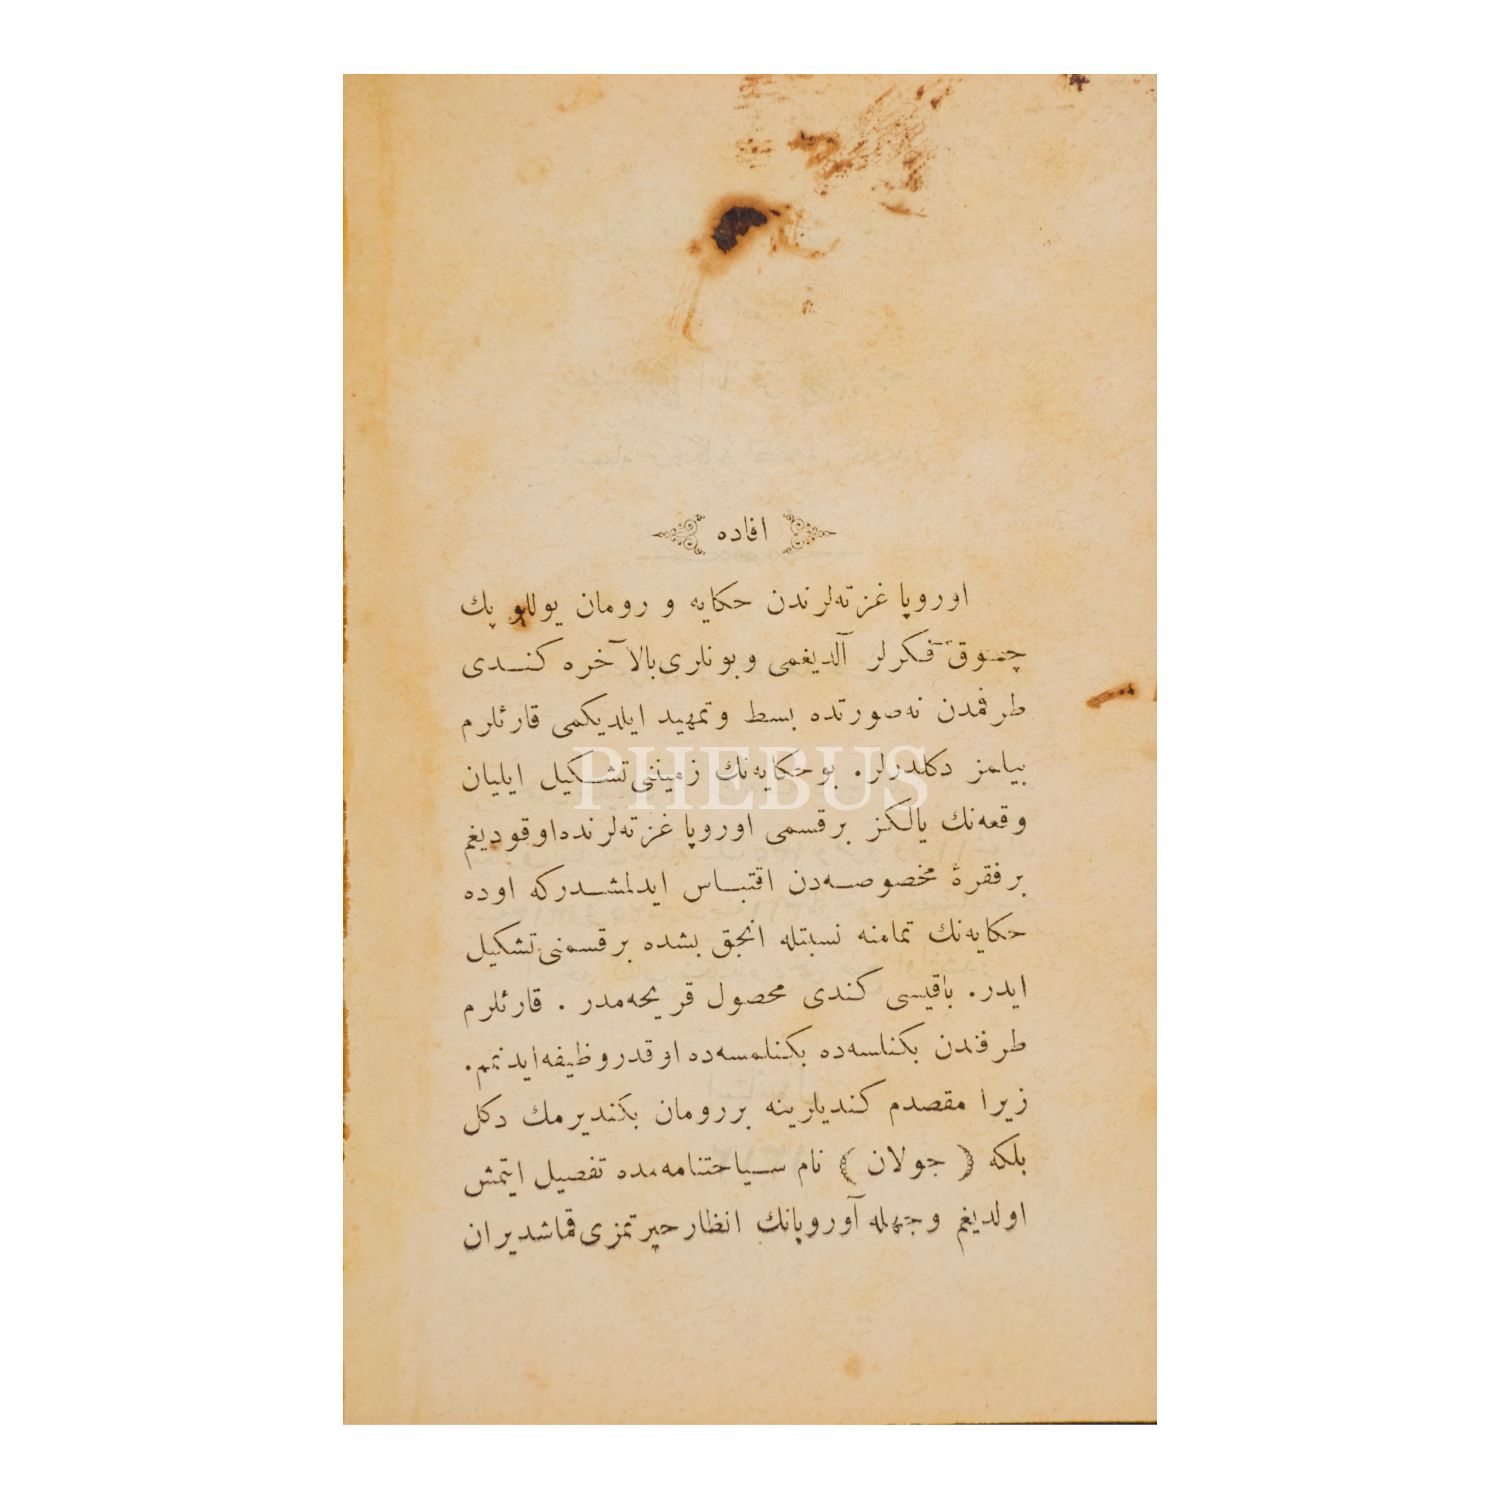 افاده
اوروپا غزته‌لرندن حكايه و رومان يوللو پك
چـوق فكرلر آلديغمى وبونلرى بالاآخره كنـدى
طرفمدن نه‌صورتده بسط وتمهيد ايلديكمى قارئلرم
بيلمز دكلدرلر. بوحكايه‌نك زميننى تشـكيل ايليان
وقعه‌نك يالكز برقسمى اوروپا غزته‌لرنده‌اوقوديغم
برفقرهٔ مخصوصه‌دن اقتبـاس ايدلمشـدركه اوده
حكايه‌نك تمامنه نسبتله انجق بشده برقسمنى تشكيل
ايدر. باقيسى كندى محصول قريحه‌مدر . قارئلرم
طرفندن بكنلسه‌ده بكنلمسه‌ده اوقدر وظيفه‌ايدنمم.
زيرا مقصدم كنديلرينه بررومان بكنديرمك دكل
بلكه ( جولان ) نام سـياحتنامه‌مده تفصيل ايتمش
اولديغم وجهله آوروپانك انظار حيرتمزى قماشديران
PHEBUS